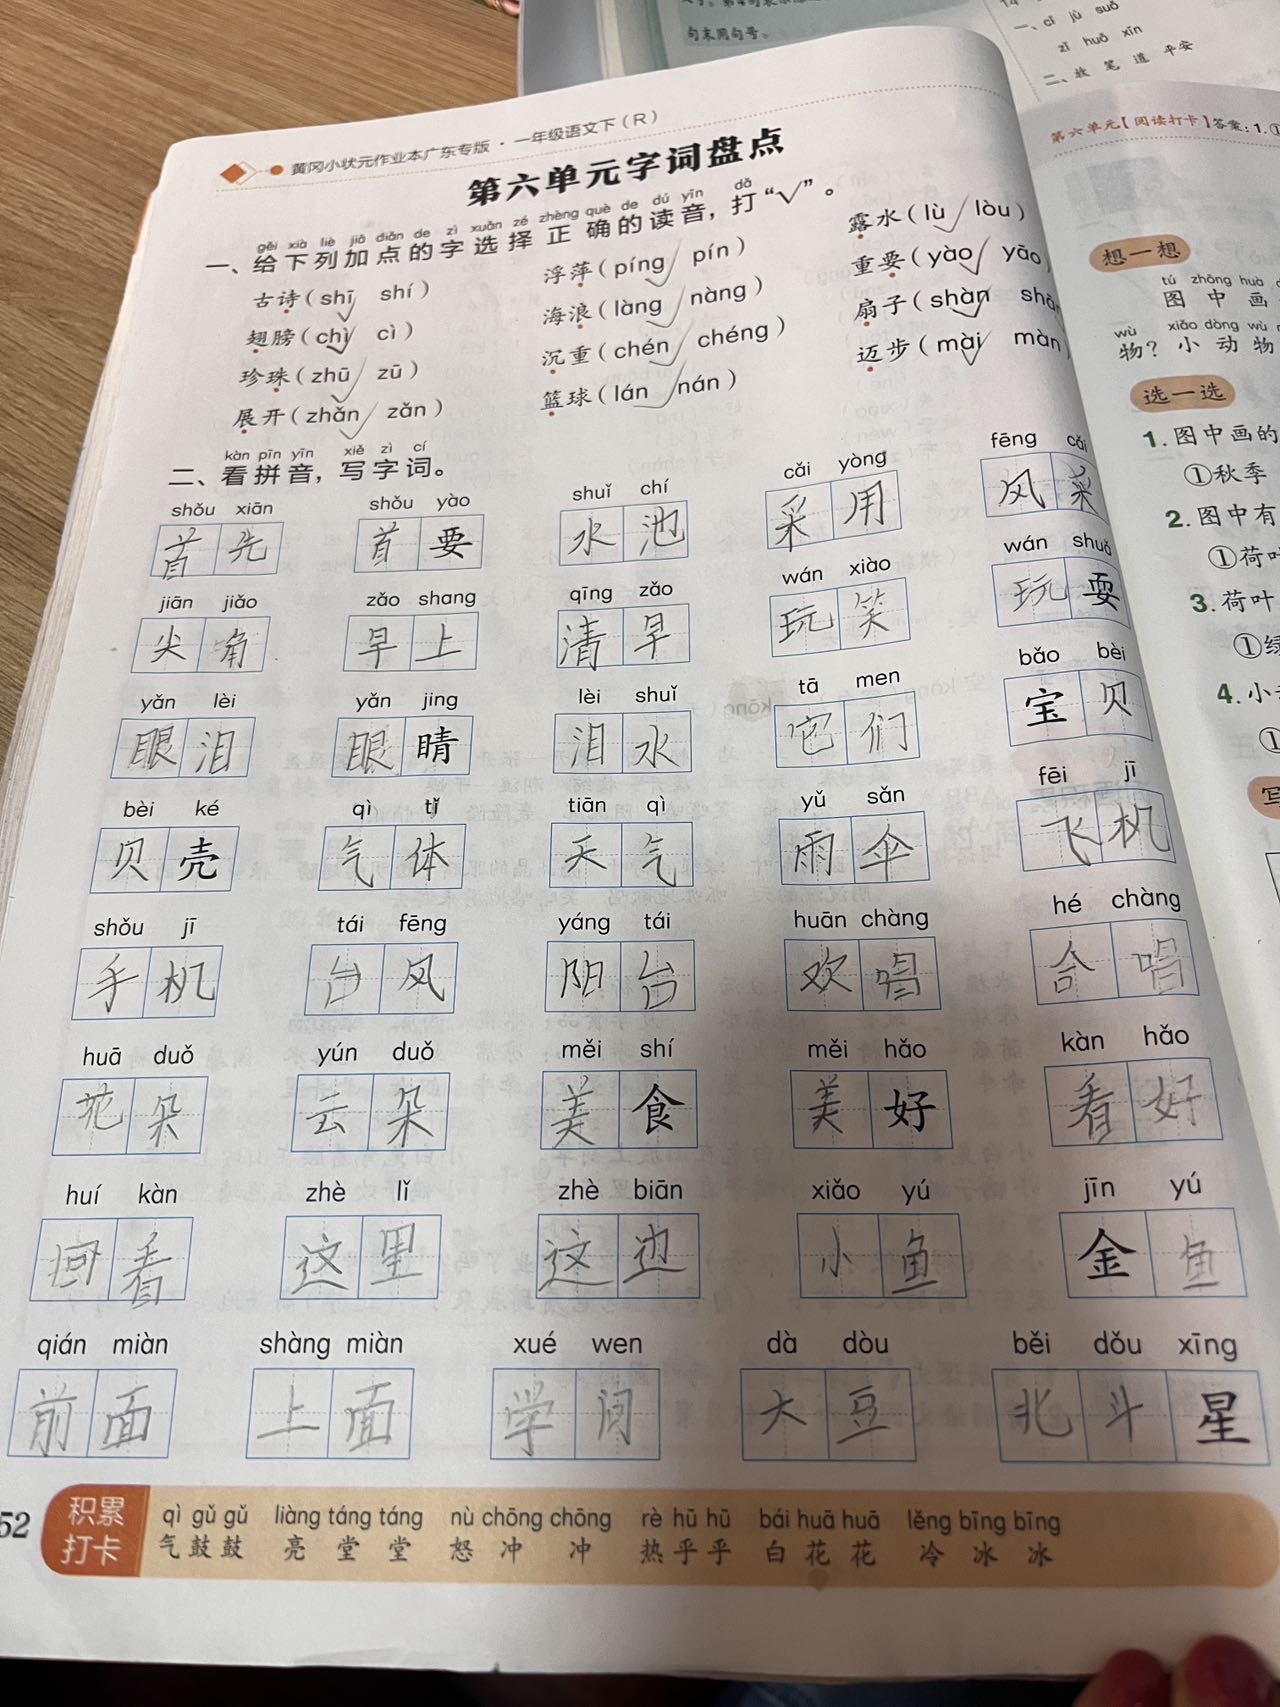 句末用句号。
一、cī jù suǒ
zǐ huǒ xīn
二、故 笔 道 平安
黄冈小状元作业本广东专版·一年级语文下（R）
第六单元字词盘点
gěi xià liè jiā diǎn de zì xuǎn zé zhèng què de dú yīn dǎ
一、给下列加点的字选择正确的读音，打“√”。
古诗（shī√ shí） 浮萍（píng√ pín） 露水（lù√ lòu）
翅膀（chì√ cì） 海浪（làng√ nàng） 重要（yào√ yāo）
珍珠（zhū√ zū） 沉重（chén√ chéng） 扇子（shàn√
展开（zhǎn√ zǎn） 篮球（lán√ nán） 迈步（mài√ màn）
kàn pīn yīn xiě zì cí
二、看拼音，写字词。
shǒu xiān shǒu yào shuǐ chí cǎi yòng fēng cǎi
首先 首要 水池 采用 风采
jiān jiǎo zǎo shang qīng zǎo wán xiào wán shuǎ
尖角 早上 清早 玩笑 玩耍
yǎn lèi yǎn jing lèi shuǐ tā men bǎo bèi
眼泪 眼睛 泪水 它们 宝贝
bèi ké qì tǐ tiān qì yǔ sǎn fēi jī
贝壳 气体 天气 雨伞 飞机
shǒu jī tái fēng yáng tái huān chàng hé chàng
手机 台风 阳台 欢唱 合唱
huā duǒ yún duǒ měi shí měi hǎo kàn hǎo
花朵 云朵 美食 美好 看好
huí kàn zhè lǐ zhè biān xiǎo yú jīn yú
回看 这里 这边 小鱼 金鱼
qián miàn shàng miàn xué wen dà dòu běi dǒu xīng
前面 上面 学问 大豆 北斗星
52
积累打卡
qì gǔ gǔ liàng táng táng nù chōng chōng rè hū hū bái huā huā lěng bīng bīng
气鼓鼓 亮堂堂 怒冲冲 热乎乎 白花花 冷冰冰
第六单元【阅读打卡】答案：1.①
想一想
tú zhōng huà
图中画
wù xiǎo dòng wù
物？小动物
选一选
1.图中画的
①秋季
2.图中有
①荷叶
3.荷叶
①绿
4.小
①
写